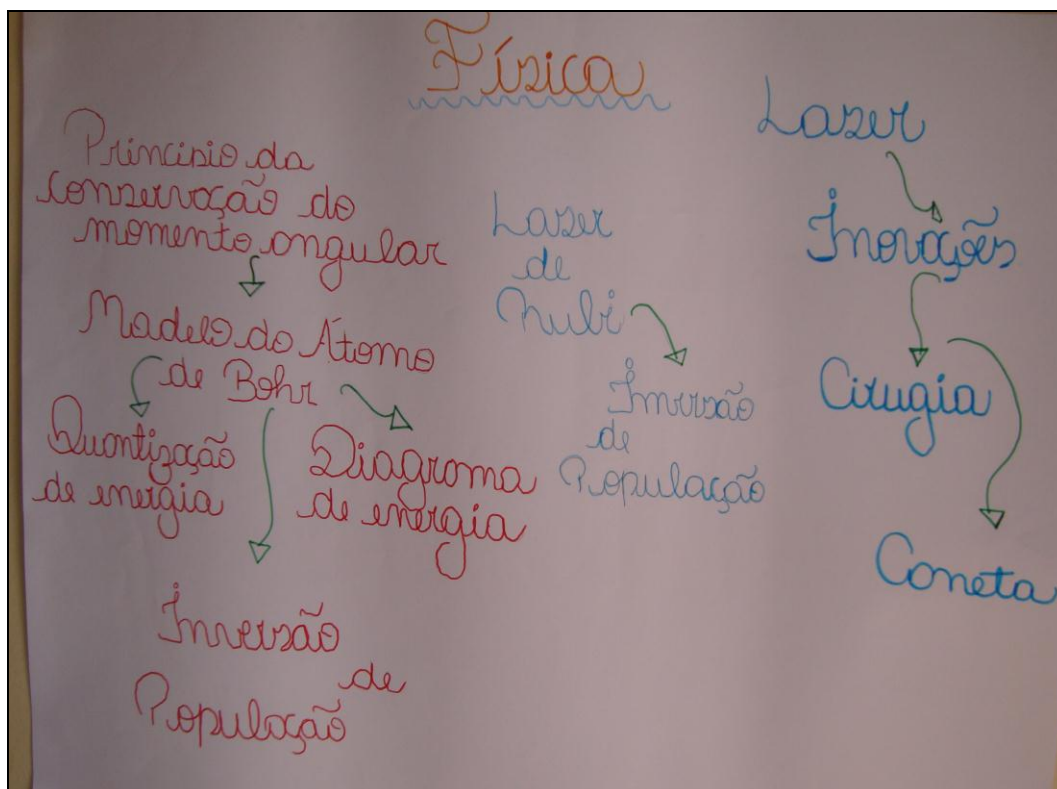 Física
Princípio da
conservação do
momento angular
Modelo do Átomo
de Bohr
Quantização
de energia
Diagrama
de energia
Inversão
de
População
Lazer
de
Rubi
Inversão
de
População
Lazer
Inovações
Cirugia
Caneta